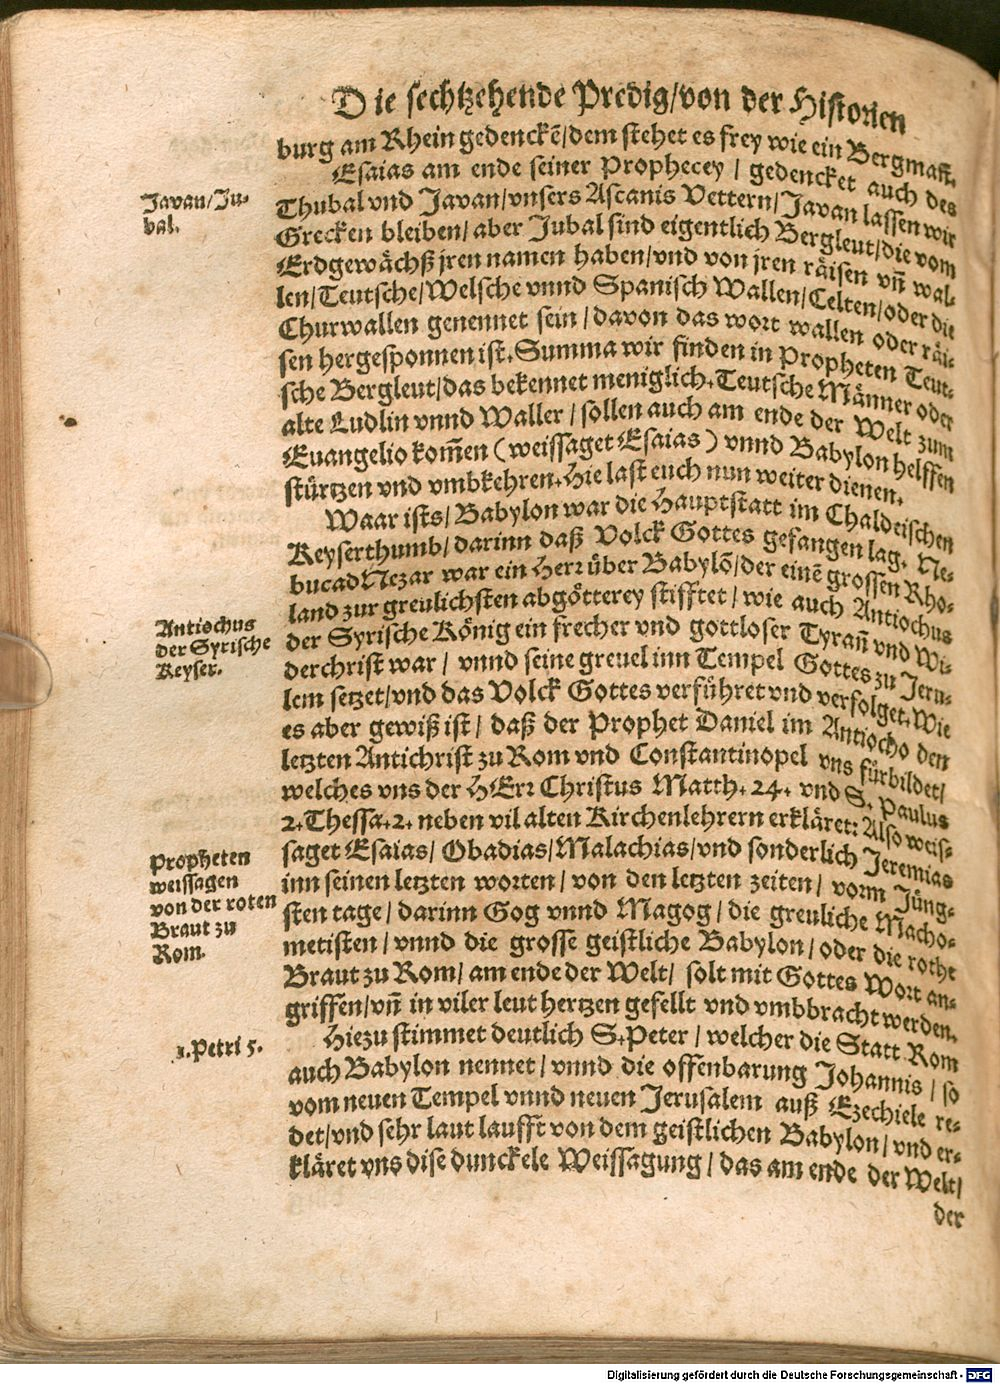 Die sechtzehende Predig/von der Historien
burg am Rhein gedenckẽ/dem stehet es frey wie ein Bergmañ.
Esaias am ende seiner Prophecey / gedencket auch des
Javan/Ju-
bal.
Thubal vnd Javan/vnsers Ascanis Vettern/Javan lassen wir
Grecken bleiben/aber Jubal sind eigentlich Bergleut/die vom
Erdgewächß jren namen haben/vnd von jren räisen vñ wal-
len/Teutsche/Welsche vnnd Spanisch Wallen/Celten/oder die
Churwallen genennet sein/davon das wort wallen oder räi-
sen hergesponnen ist. Summa wir finden in Propheten Teut-
sche Bergleut/das bekennet meniglich. Teutsche Männer oder
alte Ludlin vnnd Waller / sollen auch am ende der Welt zum
Euangelio kom̃en (weissaget Esaias) vnnd Babylon helffen
stürtzen vnd vmbkehren. Hie last euch nun weiter dienen.
Waar ists/Babylon war die Hauptstatt im Chaldeischen
Keyserthumb/darinn daß Volck Gottes gefangen lag. Ne-
bucadNezar war ein Herr über Babylõ/der einẽ grossen Rho-
land zur greulichsten abgötterey stifftet / wie auch Antiochus
Antiochus
der Syrische
Keyser.
der Syrische König ein frecher vnd gottloser Tyrañ vnd Wi-
derchrist war / vnnd seine greuel inn Tempel Gottes zu Jeru-
lem setzet/vnd das Volck Gottes verführet vnd verfolget. Wie
es aber gewiß ist / daß der Prophet Daniel im Antiocho den
letzten Antichrist zu Rom vnd Constantinopel vns fürbildet/
welches vns der HErr Christus Matth. 24. vnd S. Paulus
2. Thessa. 2. neben vil alten Kirchenlehrern erkläret: Also weis-
saget Esaias/ Obadias/Malachias/vnd sonderlich Jeremias
Propheten
weissagen
von der roten
Braut zu
Rom.
inn seinen letzten worten/ von den letzten zeiten/ vorm Jüng-
sten tage/ darinn Gog vnnd Magog/ die greuliche Macho-
metisten/ vnnd die grosse geistliche Babylon/ oder die rothe
Braut zu Rom/ am ende der Welt/ solt mit Gottes Wort an-
griffen/vñ in viler leut hertzen gefellt vnd vmbbracht werden.
Hiezu stimmet deutlich S. Peter / welcher die Statt Rom
1. Petri 5.
auch Babylon nennet/ vnnd die offenbarung Johannis / so
vom neuen Tempel vnnd neuen Jerusalem auß Ezechiele re-
det/vnd sehr laut laufft von dem geistlichen Babylon/ vnd er-
kläret vns dise dunckele Weissagung / das am ende der Welt/
der
Digitalisierung gefördert durch die Deutsche Forschungsgemeinschaft - DFG